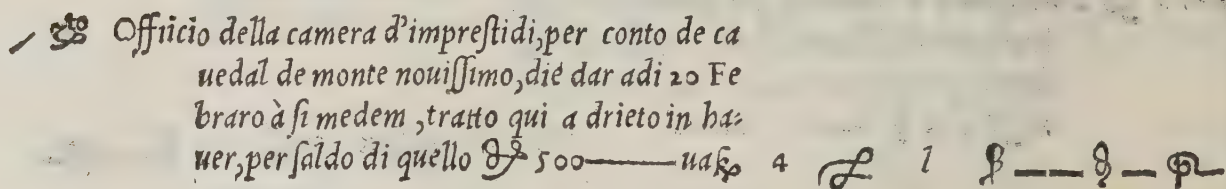 Offiicio della camera d'impreſtidi, per conto de ca
uedal de monte nouiſſimo, die dar adi 20 Fe
braro à ſi medem, tratto qui a drieto in ha=
uer, per ſaldo di quello 500 — ual 4 l